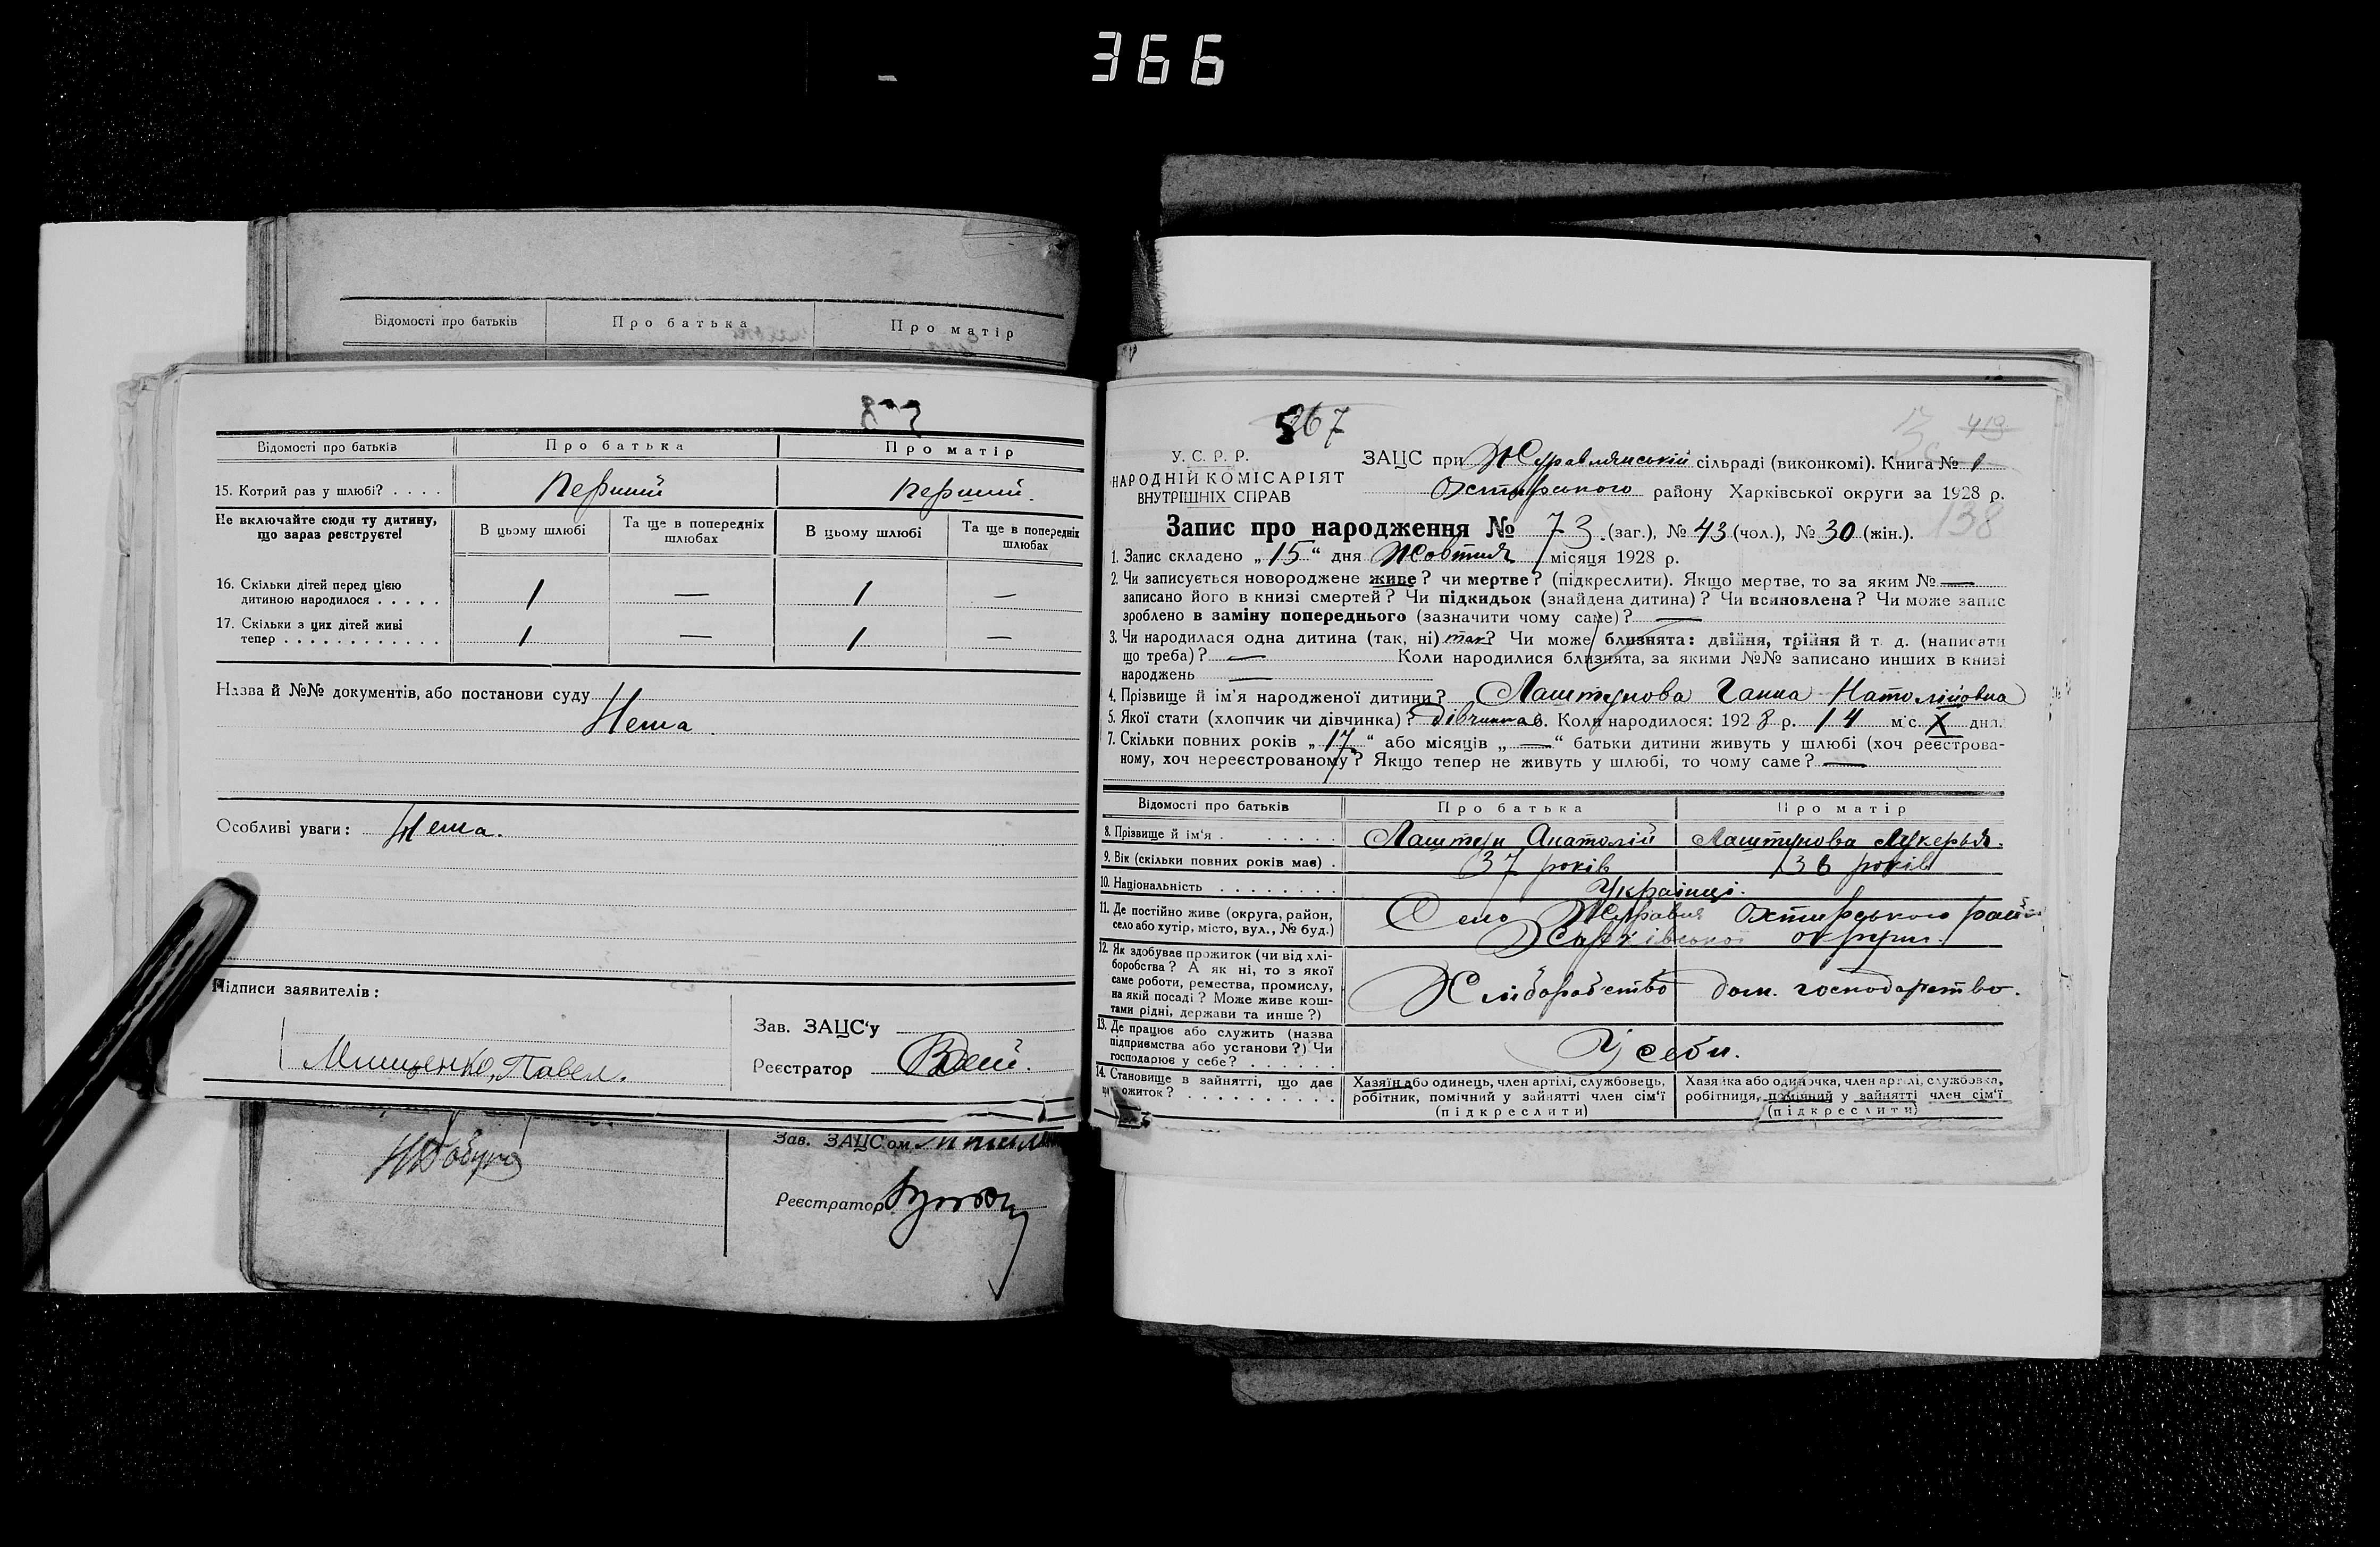 366
Відомості про батьків Про батька Про матір
Відомості про батьків Про батька Про матір
15. Котрий раз у шлюбі? . . . . Перший Перший.
Не включайте сюди ту дитину, що зараз реєструєте!
В цьому шлюбі Та ще в попередніх шлюбах В цьому шлюбі Та ще в попередніх шлюбах
16. Скільки дітей перед цією
дитиною народилося . . . . . 1 — 1 —
17. Скільки з цих дітей живі
тепер . . . . . . . . . . . . 1 — 1 —
Назва й №№ документів, або постанови суду
Нема.
Особливі уваги: Нема.
Підписи заявителів:
Зав. ЗАЦС'у
Мищенко, Павел.
Реєстратор
Зав. ЗАЦСом
Реєстратор
367
419
138
У. С. Р. Р.
НАРОДНІЙ КОМІСАРІЯТ
ВНУТРІШНІХ СПРАВ
ЗАЦС при Журавлянській сільраді (виконкомі). Книга № 1
району Харківської округи за 1928 р.
Запис про народження № 73 (заг.), № 43 (чол.), № 30 (жін.).
1. Запис складено „15“ дня Жовтня місяця 1928 р.
2. Чи записується новороджене живе? чи мертве? (підкреслити). Якщо мертве, то за яким № —
записано його в книзі смертей? Чи підкидьок (знайдена дитина)? Чи всиновлена? Чи може запис
зроблено в заміну попереднього (зазначити чому саме)? —
3. Чи народилася одна дитина (так, ні) так? Чи може близнята: двійня, трійня й т. д. (написати
що треба)? — Коли народилися близнята, за якими №№ записано инших в книзі
народжень —
4. Прізвище й ім'я народженої дитини? Лаштунова Ганна Натолійовна
5. Якої стати (хлопчик чи дівчинка)? дівчинка 6. Коли народилося: 1928 р. 14 міс. X дня.
7. Скільки повних років „17“ або місяців „—“ батьки дитини живуть у шлюбі (хоч реєстрова-
ному, хоч нереєстрованому? Якщо тепер не живуть у шлюбі, то чому саме? —
Відомості про батьків Про батька Про матір
8. Прізвище й ім'я . . . . . . Лаштун Анатолій Лаштунова Лукерья.
9. Вік (скільки повних років має) . 37 років 36 років
10. Національність . . . . . . . . Українці.
11. Де постійно живе (округа, район,
село або хутір, місто, вул., № буд.)
Село Журавня райо
Харківської округи.
12. Як здобуває прожиток (чи від хлі-
боробства? А як ні, то з якої
саме роботи, ремества, промислу,
на якій посаді? Може живе кош-
тами рідні, держави та инше?)
Хліборобство дом. господарство.
13. Де працює або служить (назва
підприємства або установи?) Чи
господарює у себе? . . . . . .
У себи.
14. Становище в зайнятті, що дає
прожиток? . . . . . . . . . .
Хазяїн або одинець, член артілі, службовець,
робітник, помічний у зайнятті член сім'ї
(підкреслити)
Хазяйка або одиночка, член артілі, службовка,
робітниця, помічний у зайнятті член сім'ї
(підкреслити)